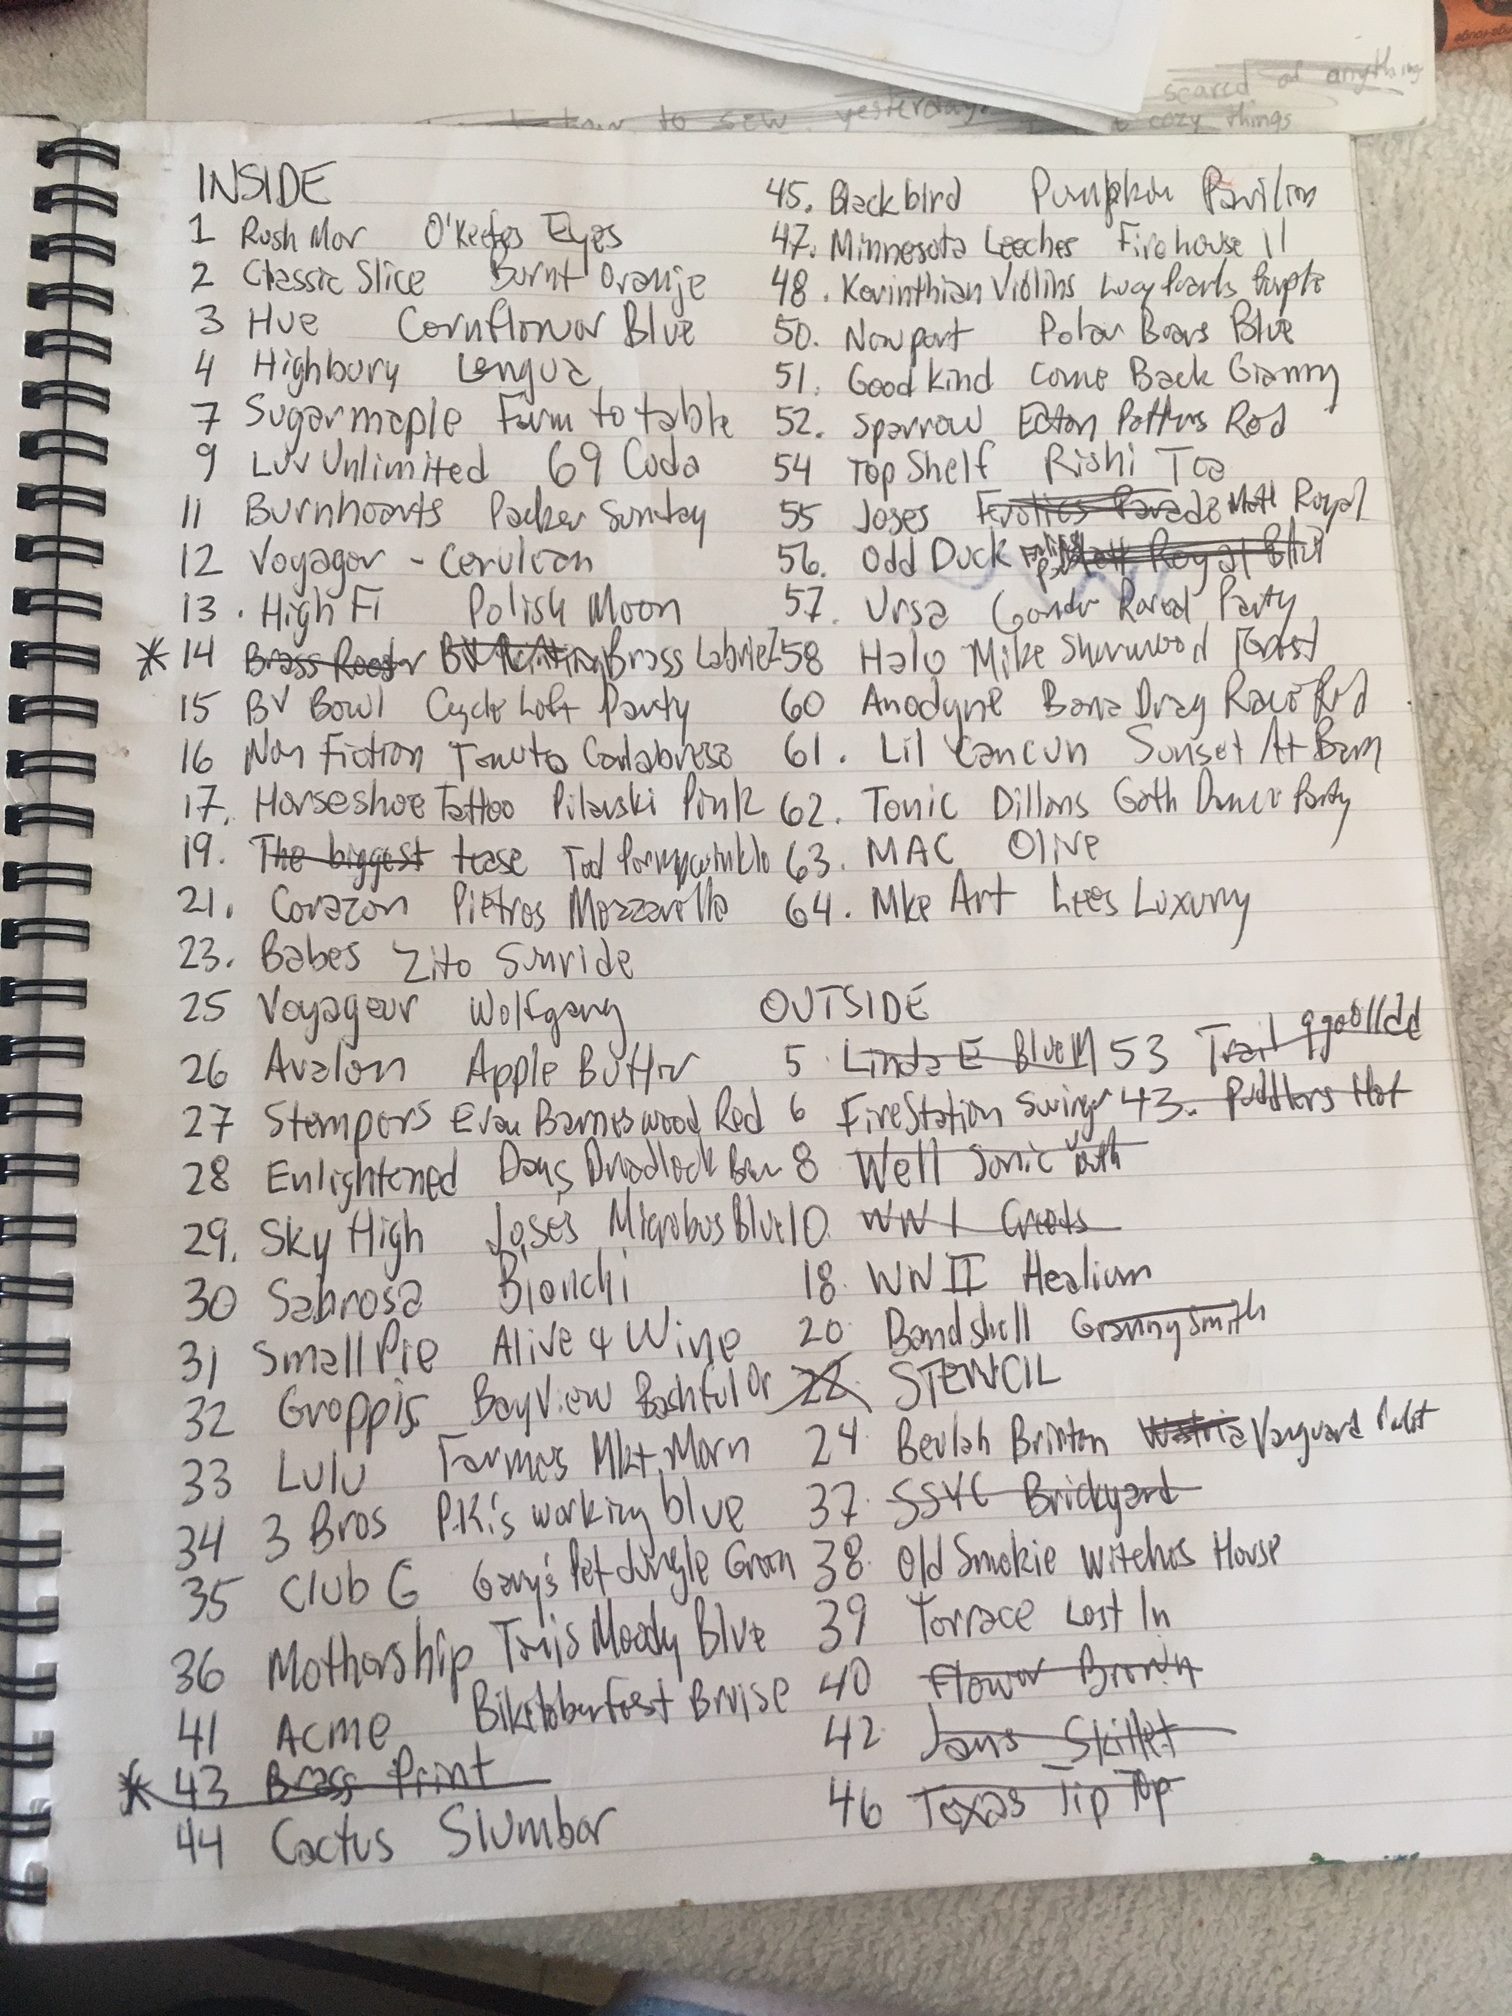 scared of anything
know to sew yesterday
cozy things
INSIDE
1 Rush Mor O'Keefes Eyes
2 Classic Slice Burnt Oranje
3 Hue Cornflower Blue
4 Highbury Lengua
7 Sugarmaple Farm to table
9 Luv Unlimited 69 Cuda
11 Burnhearts Packer Sunday
12 Voyager - Cerulean
13. High Fi Polish Moon
* 14 Brass Rooster Brass
15 BV Bowl Cycle Loft Party
16 Non Fiction Tomato Calabrese
17. Horseshoe Tattoo Pilarski Pink
19. The biggest tease Tod
21. Corazon Pietros Mozzarella
23. Babes Zito Sunride
25 Voyageur Wolfgang
26 Avalon Apple Butter
27 Stempers Evan Barneswood Red
28 Enlightened Dans Dreadlock
29. Sky High Jose's Microbus Blue
30 Sabrosa Bianchi
31 Small Pie Alive & Wine
32 Groppis BayView Bashful Or
33 Lulu Farmers Mkt. Morn
34 3 Bros P.K.'s working blue
35 Club G Gary's Pet Jungle Green
36 Mothership Moody Blue
41 ACME Biketoberfest Bruise
* 43 Brass Print
44 Cactus Slumber
45. Blackbird Pumpkin Pavilion
47. Minnesota Leeches Firehouse 11
48. Korinthian Violins Lucy Pearls Purple
50. Newport Polar Bears Blue
51. Good Kind Come Back Gianny
52. Sparrow Potters Red
54 Top Shelf Rishi Tea
55 Joses Frolics Parade Matt Royal
56. Odd Duck Matt Royal Blue
57. Ursa Party
58 Halo Mike Sherwood Forest
60 Anodyne Bana Drag Race Red
61. Lil Cancun Sunset At Bam
62. Tonic Dillons Goth Dance Party
63. MAC Olive
64. Mke Art Lees Luxury
OUTSIDE
5. Linda E Blue M
6 Fire Station Swinger
8 Well Sonic Youth
10. WW I
18. WW II Healium
20. Bandshell Granny Smith
22. STENCIL
24. Beulah Brinton Vanguard
37. SSYC Brickyard
38. Old Smokie Witches House
39 Terrace Lost In
40 Flower Brown
42. Jans Skillet
46 Texas Tip Top
53 Trail
43. Puddlers Hot